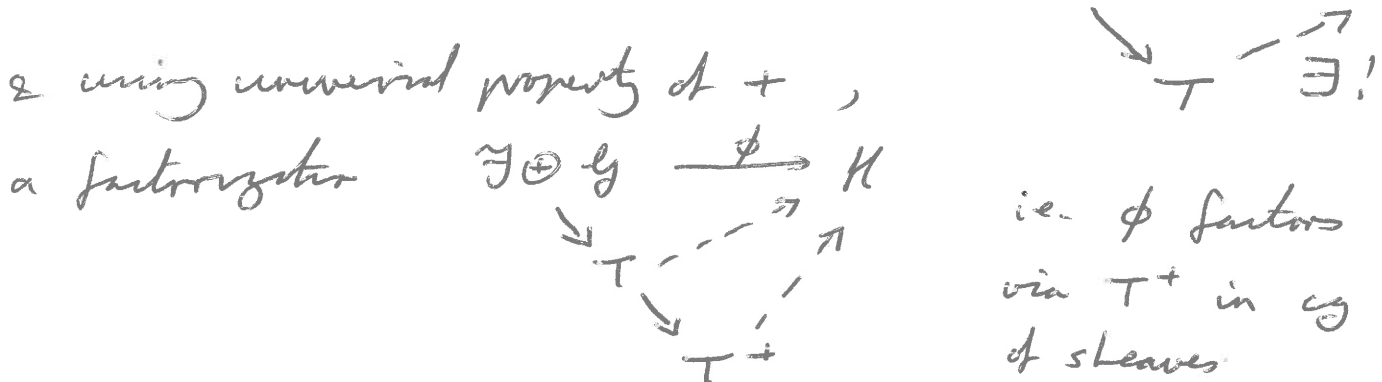 T ∃!
& using universal property of + ,
a factorization F ⊕ G —ϕ→ H
T
T⁺
i.e. ϕ factors
via T⁺ in cg
of sheaves